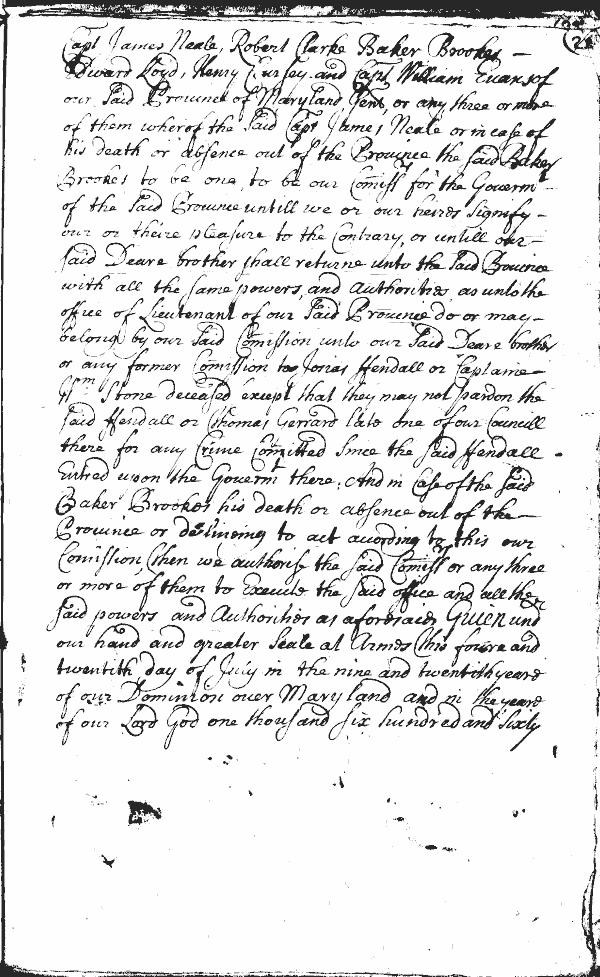 Capt James Neale, Robert Clarke Baker Brookes —
Edward Loyd, Henry Cursey and Capt William Evans of
our Said Province of Maryland Gent, or any three or more
of them wherof the Said Capt James Neale or in case of
his death or absence out of the Province the said Baker
Brookes to be one, to be our Comissrs for the Governt -
of the Said Province untill we or our heires Signify -
our or theire pleasure to the Contrary, or untill our -
said Deare brother shall returne unto the Said Province
with all the same powers, and Authorities, as unto the
office of Lieutenant of our Said Province do or may -
belong by our Said Comission unto our Said Deare brother
or any former Comission to Jonas Hendall or Captaine -
Wm Stone deceased except that they may not pardon the
Said Hendall or Thomas Gerrard late one of our Councill
there for any Crime Comitted since the said Hendall -
Entred upon the Governt there; And in Case of the said
Baker Brookes his death or absence out of the —
Province or declineing to act according to this our
Comission, then we authorise the said Comissrs or any three
or more of them to Execute the Said office and all the
said powers and Authorities as aforesaid, Given undr
our hand and greater Seale at Armes this foure and
twentith day of July in the nine and twentith yeare
of our Dominion over Maryland and in the yeare
of our Lord God one thousand six hundred and Sixty